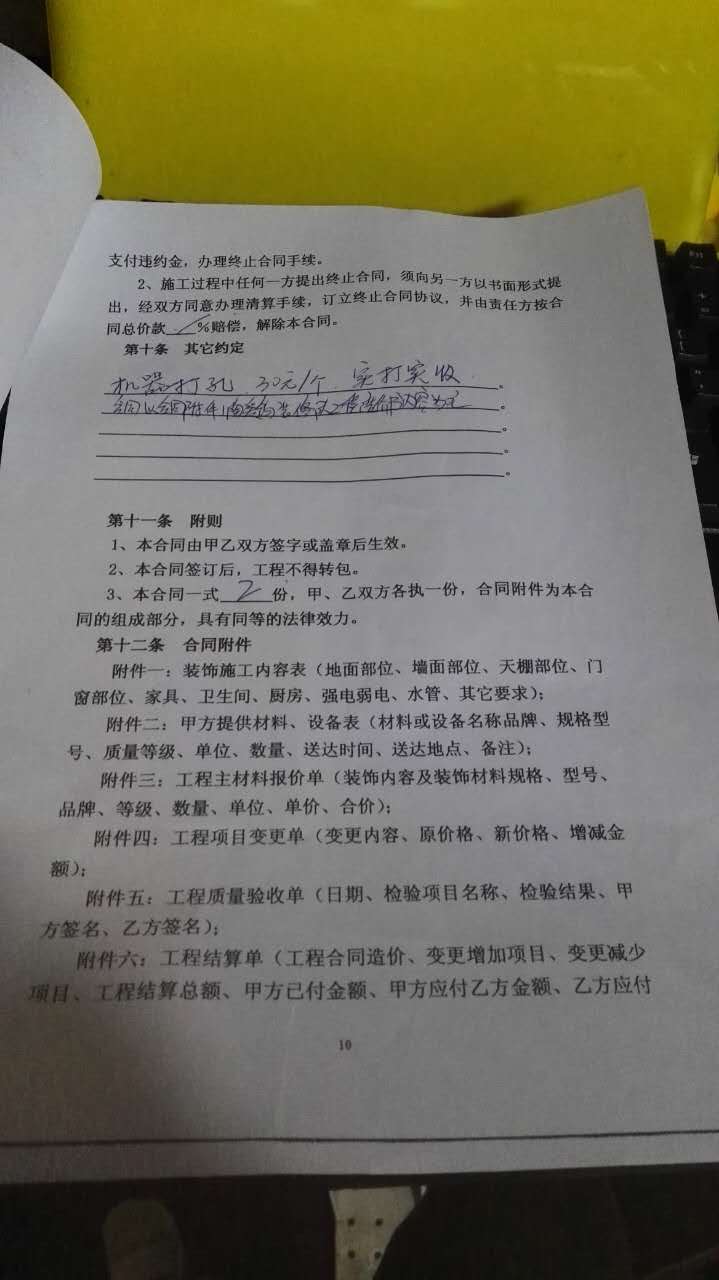 支付违约金，办理终止合同手续。
2、施工过程中任何一方提出终止合同，须向另一方以书面形式提
出，经双方同意办理清算手续，订立终止合同协议，并由责任方按合
同总价款 / %赔偿，解除本合同。
第十条 其它约定
机器打孔 30元/个 实打实收。
合同以合同附件内为主。
。
。
。
第十一条 附则
1、本合同由甲乙双方签字或盖章后生效。
2、本合同签订后，工程不得转包。
3、本合同一式 2 份，甲、乙双方各执一份，合同附件为本合
同的组成部分，具有同等的法律效力。
第十二条 合同附件
附件一：装饰施工内容表（地面部位、墙面部位、天棚部位、门
窗部位、家具、卫生间、厨房、强电弱电、水管、其它要求）；
附件二：甲方提供材料、设备表（材料或设备名称品牌、规格型
号、质量等级、单位、数量、送达时间、送达地点、备注）；
附件三：工程主材料报价单（装饰内容及装饰材料规格、型号、
品牌、等级、数量、单位、单价、合价）；
附件四：工程项目变更单（变更内容、原价格、新价格、增减金
额）；
附件五：工程质量验收单（日期、检验项目名称、检验结果、甲
方签名、乙方签名）；
附件六：工程结算单（工程合同造价、变更增加项目、变更减少
项目、工程结算总额、甲方已付金额、甲方应付乙方金额、乙方应付
10